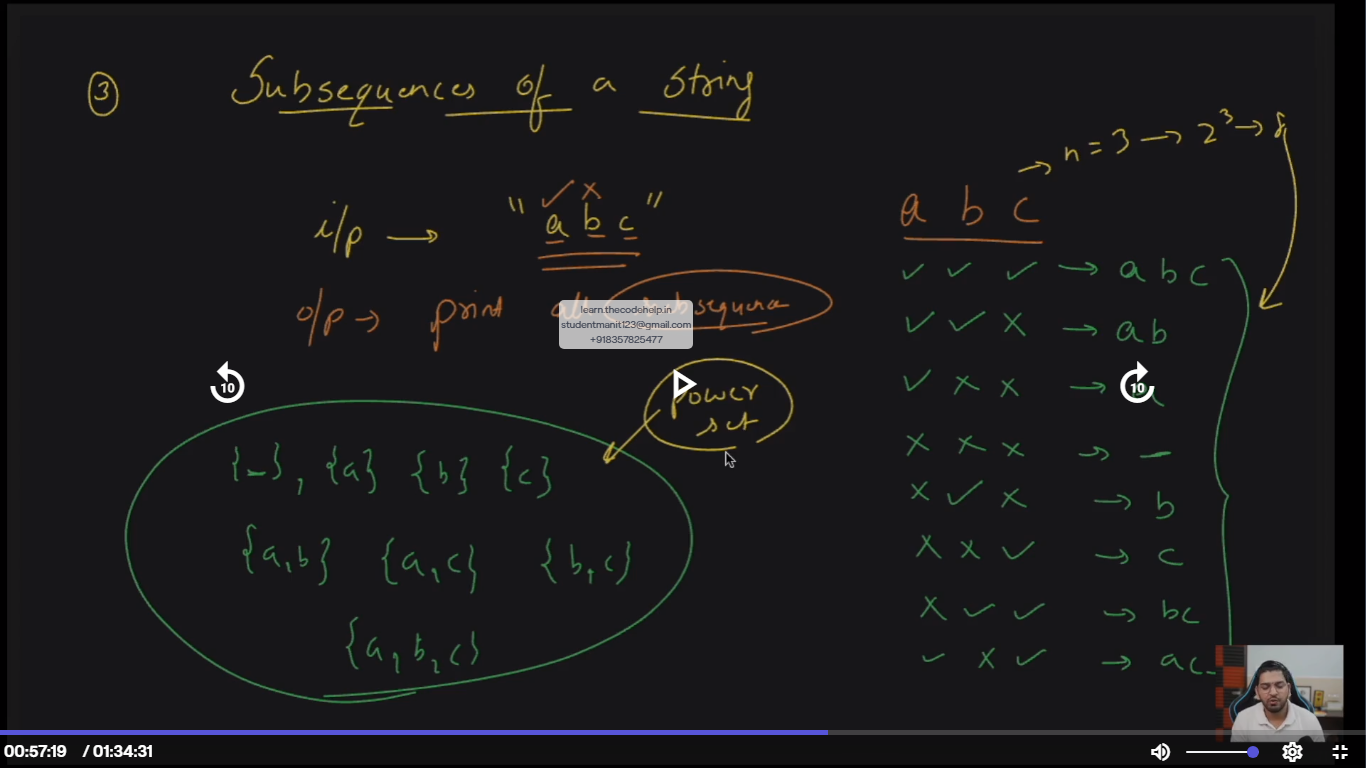 ③ Subsequences of a string
n = 3 → 2³ → 8
i/p → "a b c"
✓ x
a b c
o/p → print all subsequence
learn.thecodehelp.in
studentmanit123@gmail.com
+918357825477
power
set
{_}, {a} {b} {c}
{a,b} {a,c} {b,c}
{a,b,c}
✓ ✓ ✓ → a b c
✓ ✓ x → a b
✓ x x →
x x x → –
x ✓ x → b
x x ✓ → c
x ✓ ✓ → bc
✓ x ✓ → ac
10
10
00:57:19 / 01:34:31